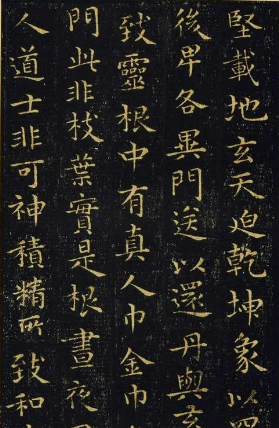 堅載地玄天迫乾坤象以四
後卑各異門送以還丹與玄
致靈根中有真人巾金巾
門此非枝葉實是根晝夜
人道士非可神積精所致和